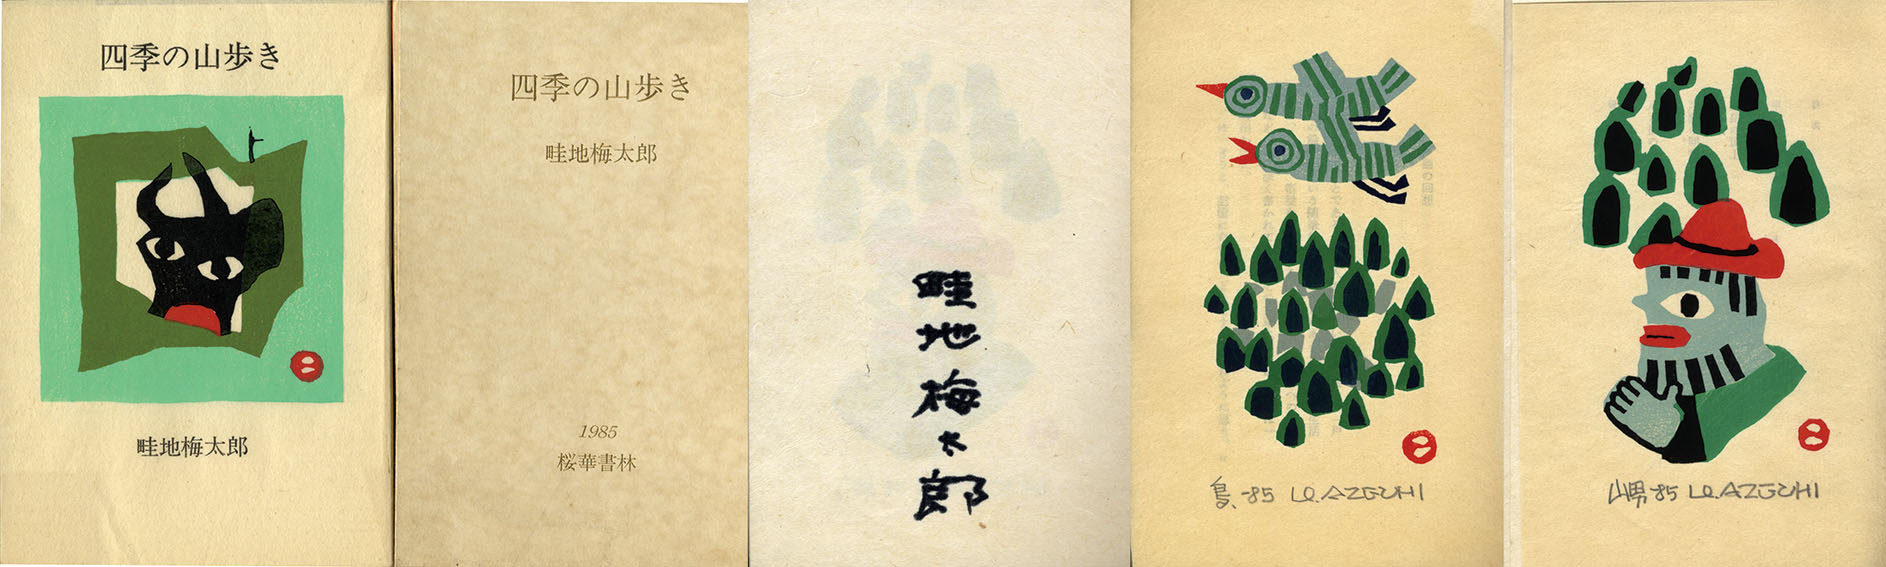 四季の山歩き
畦地梅太郎
四季の山歩き
畦地梅太郎
1985
桜華書林
畦地梅太郎
鳥 -85 U.AZECHI
山男 -85 U.AZECHI